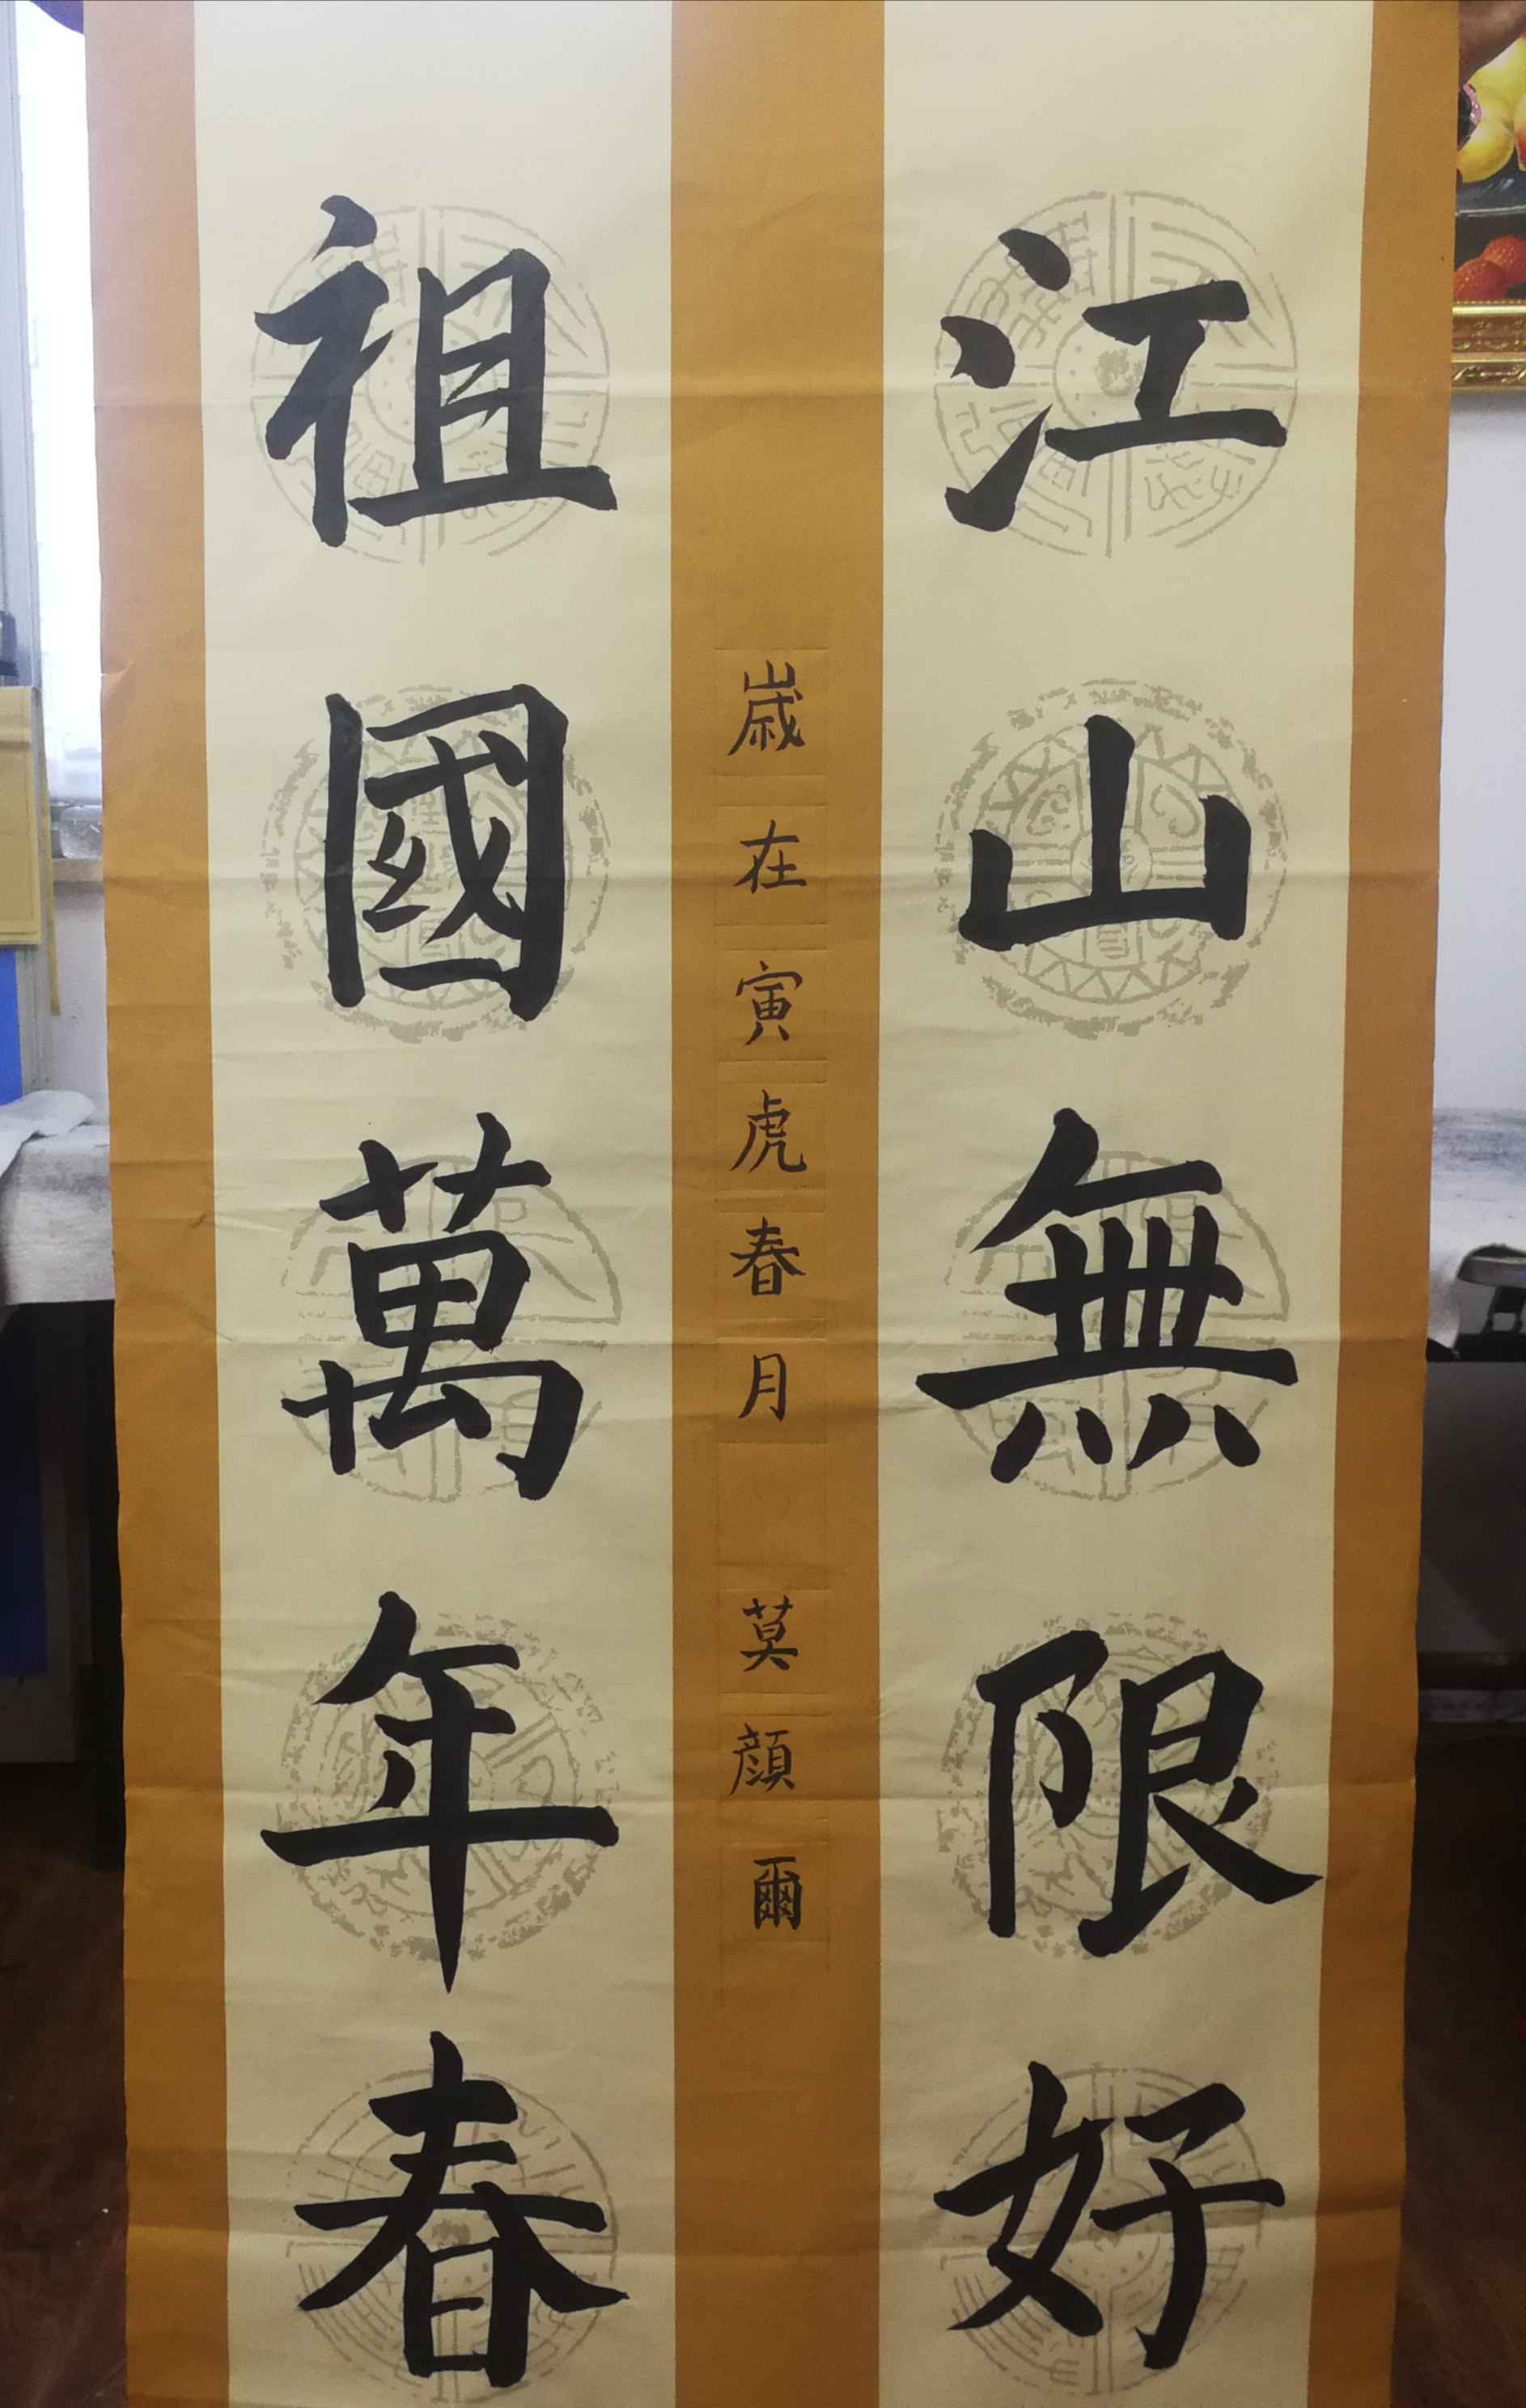 江山無限好
歲在寅虎春月 莫顔爾
祖國萬年春